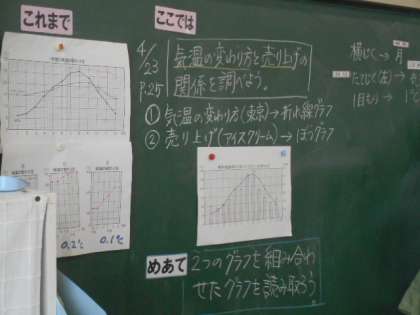 これまで
0.2℃
0.1℃
ここでは
4/23
P.25
気温の変わり方と売り上げの
関係を調べよう。
① 気温の変わり方(東京)→折れ線グラフ
② 売り上げ(アイスクリーム)→ぼうグラフ
めあて
2つのグラフを組み合わ
せたグラフを読み取ろう
横じく→月
たてじく(左)→
1目もり→